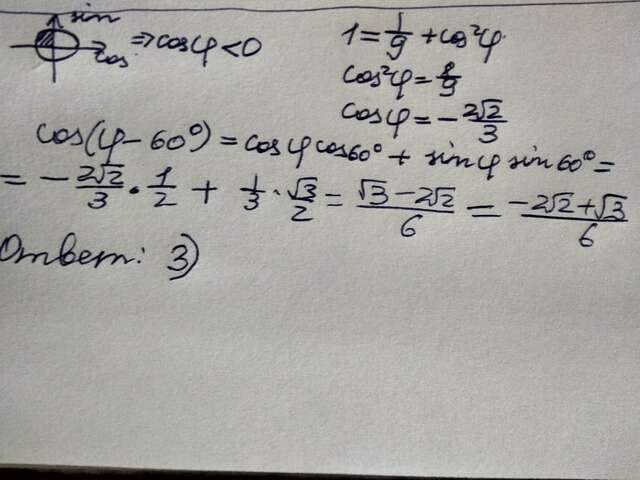 sin
cos
⇒ cosφ < 0
1 = 1/9 + cos²φ
cos²φ = 8/9
cosφ = - 2√2/3
cos(φ - 60°) = cosφ cos60° + sinφ sin60° =
= - 2√2/3 · 1/2 + 1/3 · √3/2 = √3 - 2√2/6 = -2√2 + √3/6
Ответ: 3)